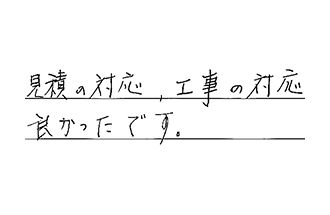 見積の対応,工事の対応
良かったです。